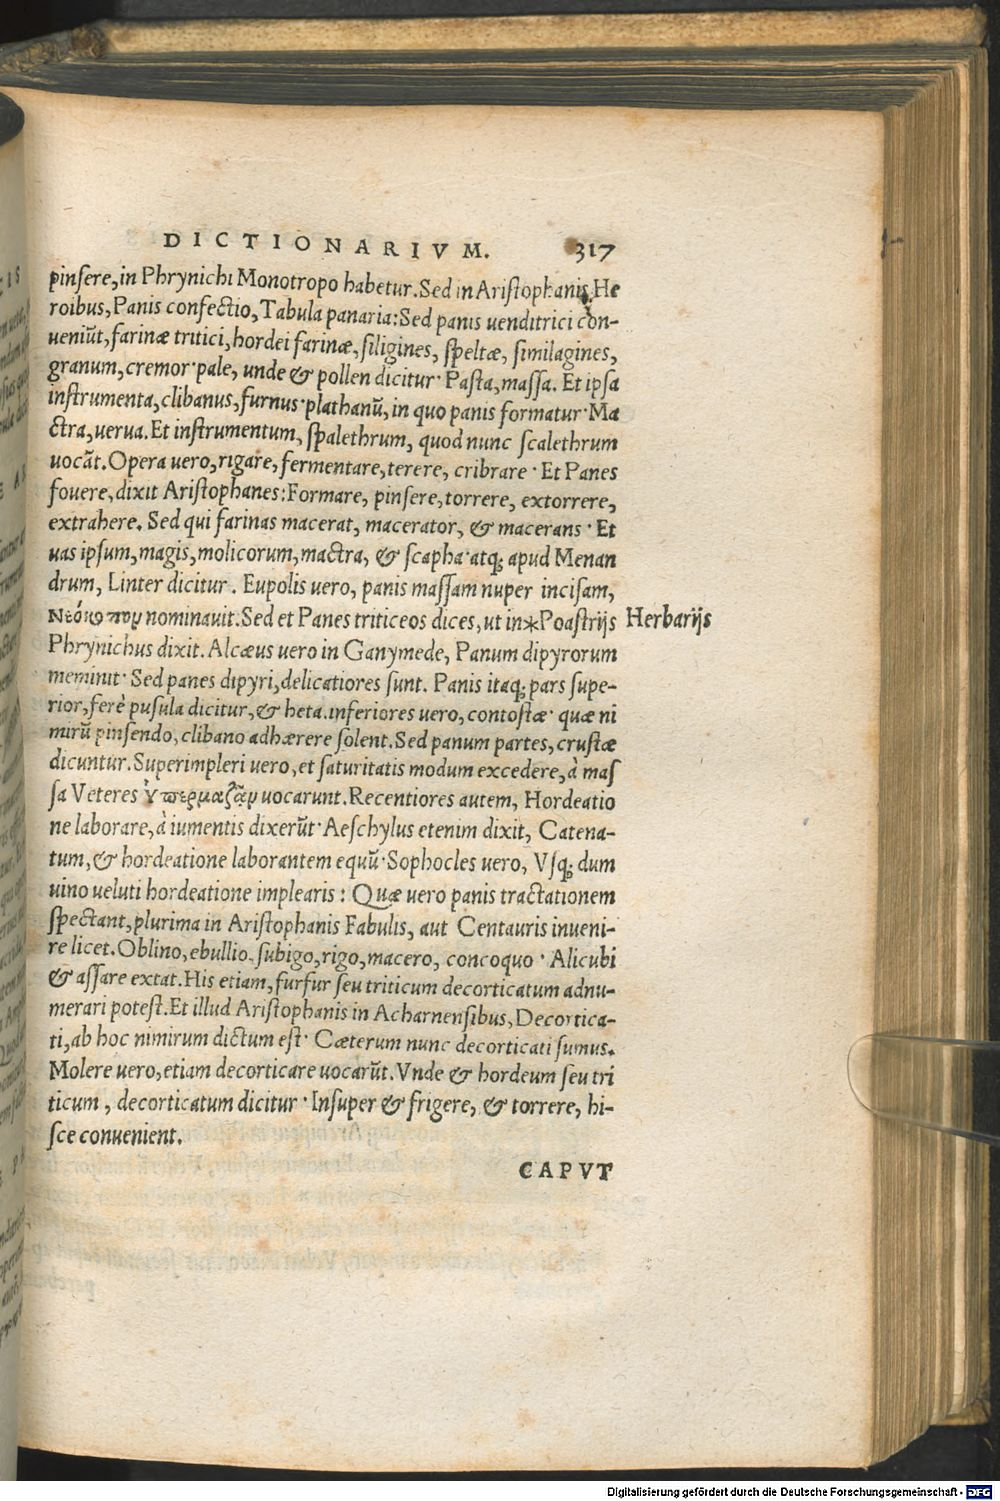 DICTIONARIVM. 317
pinsere, in Phrynichi Monotropo habetur. Sed in Aristophanis, He
roibus, Panis confectio, Tabula panaria: Sed panis uenditrici con-
ueniũt, farinæ tritici, hordei farinæ, siligines, speltæ, similagines,
granum, cremor· pale, unde & pollen dicitur· Pasta, massa. Et ipsa
instrumenta, clibanus, furnus· plathanũ, in quo panis formatur· Ma
ctra, uerua. Et instrumentum, spalethrum, quod nunc scalethrum
uocãt. Opera uero, rigare, fermentare, terere, cribrare· Et Panes
fouere, dixit Aristophanes: Formare, pinsere, torrere, extorrere,
extrahere. Sed qui farinas macerat, macerator, & macerans· Et
uas ipsum, magis, molicorum, mactra, & scapha· atq; apud Menan
drum, Linter dicitur. Eupolis uero, panis massam nuper incisam,
Νεόκοπον nominauit. Sed et Panes triticeos dices, ut in *Poastrijs
Herbarijs
Phrynichus dixit. Alcæus uero in Ganymede, Panum dipyrorum
meminit· Sed panes dipyri, delicatiores sunt. Panis itaq; pars supe-
rior, ferè pusula dicitur, & heta. inferiores uero, contostæ· quæ ni
mirũ pinsendo, clibano adhærere solent. Sed panum partes, crustæ
dicuntur. Superimpleri uero, et saturitatis modum excedere, à mas
sa Veteres ὑπερμαζᾷν uocarunt. Recentiores autem, Hordeatio
ne laborare, à iumentis dixerũt· Aeschylus etenim dixit, Catena-
tum, & hordeatione laborantem equũ· Sophocles uero, Vsq; dum
uino ueluti hordeatione implearis: Quæ uero panis tractationem
spectant, plurima in Aristophanis Fabulis, aut Centauris inueni-
re licet. Oblino, ebullio, subigo, rigo, macero, concoquo· Alicubi
& assare extat. His etiam, furfur seu triticum decorticatum adnu-
merari potest. Et illud Aristophanis in Acharnensibus, Decortica-
ti, ab hoc nimirum dictum est· Cæterum nunc decorticati sumus.
Molere uero, etiam decorticare uocarũt. Vnde & hordeum seu tri
ticum, decorticatum dicitur· Insuper & frigere, & torrere, hi-
sce conuenient.
CAPVT
Digitalisierung gefördert durch die Deutsche Forschungsgemeinschaft - DFG